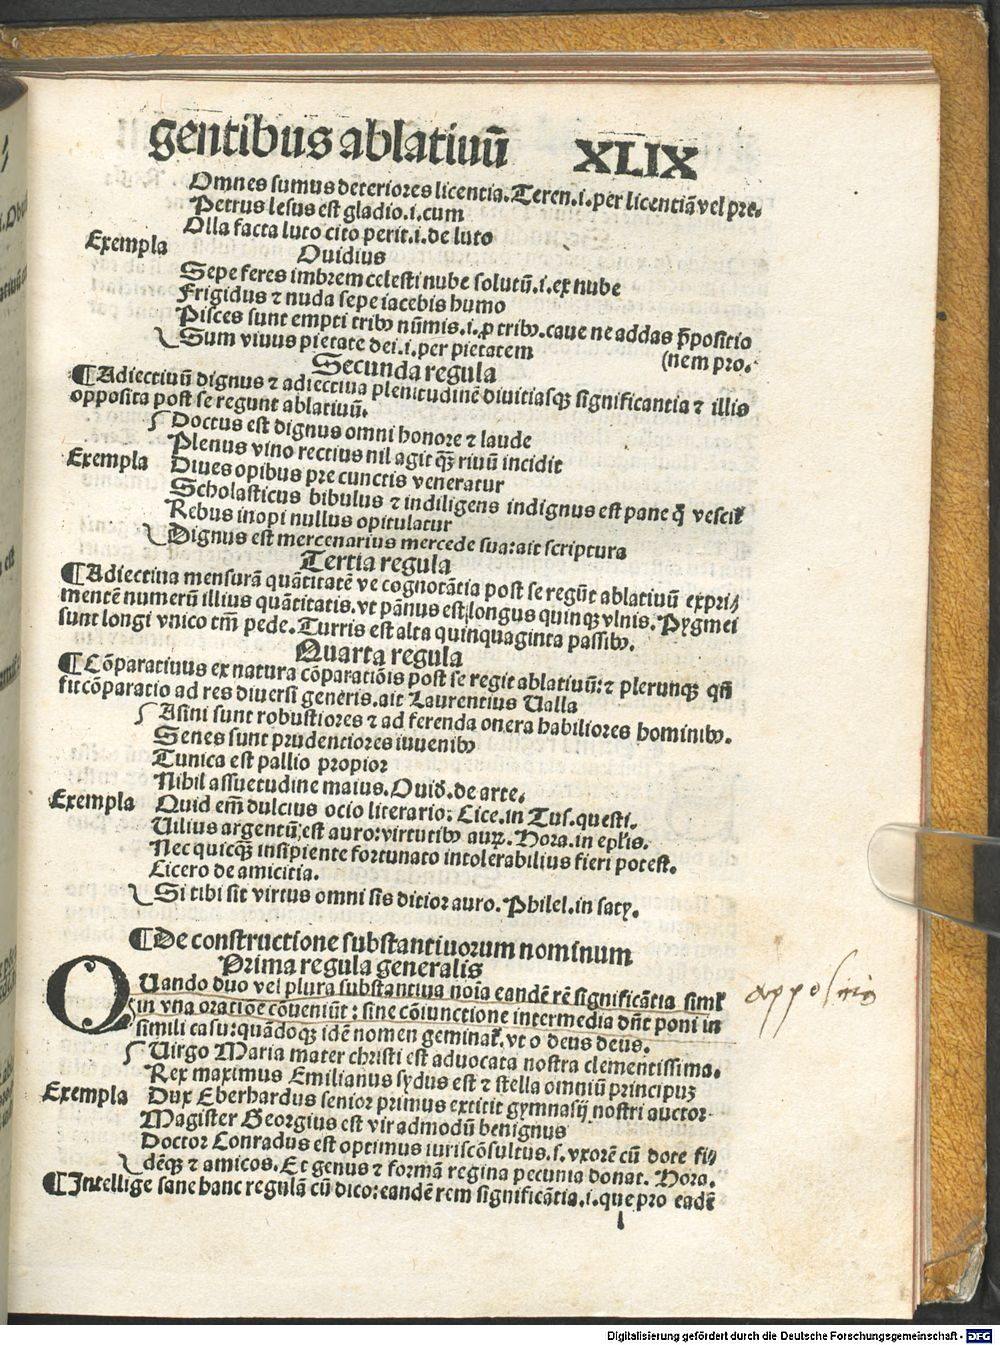 gentibus ablatiuū XLIX
Omnes sumus deteriores licentia. Teren. .i. per licentiā vel pre.
Petrus lesus est gladio .i. cum
Olla facta luto cito perit .i. de luto
Exempla Ouidius
Sepe feres imbrem celesti nube solutū .i. ex nube
Frigidus ⁊ nuda sepe iacebis humo
Pisces sunt empti tribꝰ nūmis .i. ꝓ tribꝰ. caue ne addas p̄positio
Sum viuus pietate dei .i. per pietatem (nem pro.
Secunda regula
¶ Adiectiuū dignus ⁊ adiectiua plenitudinē diuitiasqꝫ significantia ⁊ illis
opposita post se regunt ablatiuū.
Doctus est dignus omni honore ⁊ laude
Plenus vino rectius nil agit qꝫ̄ riuū incidit
Exempla Diues opibus pre cunctis veneratur
Scholasticus bibulus ⁊ indiligens indignus est pane q̄ vescit᷑
Rebus inopi nullus opitulatur
Dignus est mercenarius mercede sua: ait scriptura
Tertia regula
¶ Adiectiua mensurā quātitatē ve cognotātia post se regūt ablatiuū expri⸗
mentē numerū illius quātitatis. vt pānus est longus quinqꝫ vlnis. Pygmei
sunt longi vnico tm̄ pede. Turris est alta quinquaginta passibꝰ.
Quarta regula
¶ Cōparatiuus ex natura cōparatiōis post se regit ablatiuū: ⁊ plerunqꝫ qn̄
fit cōparatio ad res diuersi generis. ait Laurentius Ualla
Asini sunt robustiores ⁊ ad ferenda onera habiliores hominibꝰ.
Senes sunt prudentiores iuuenibꝰ
Tunica est pallio propior
Nihil assuetudine maius. Ouid. de arte.
Exempla Quid em̄ dulcius ocio literario: Cice. in Tus. questi.
Uilius argentū est auro: virtutibꝰ auꝝ. Hora. in epl̄is.
Nec quicqꝫ̄ insipiente fortunato intolerabilius fieri potest.
Cicero de amicitia.
Si tibi sit virtus omni sis ditior auro. Philel. in saty.
¶ De constructione substantiuorum nominum
Prima regula generalis
Quando duo vel plura substantiua noīa eandē rē significātia siml᷑
in vna oratiōe cōueniūt: sine cōiunctione intermedia dn̄t poni in
simili casu: quādoqꝫ idē nomen geminat᷑. vt o deus deus.
appositio
Uirgo Maria mater christi est aduocata nostra clementissima.
Rex maximus Emilianus sydus est ⁊ stella omniū principuꝫ
Exempla Dux Eberhardus senior primus extitit gymnasij nostri auctor
Magister Georgius est vir admodū benignus
Doctor Conradus est optimus iuriscōsultus. s. vxorē cū dote fi⸗
dēqꝫ ⁊ amicos. Et genus ⁊ formā regina pecunia donat. Hora.
¶ Intellige sane hanc regulā cū dico: eandē rem significātia .i. que pro eadē
l
Digitalisierung gefördert durch die Deutsche Forschungsgemeinschaft - DFG